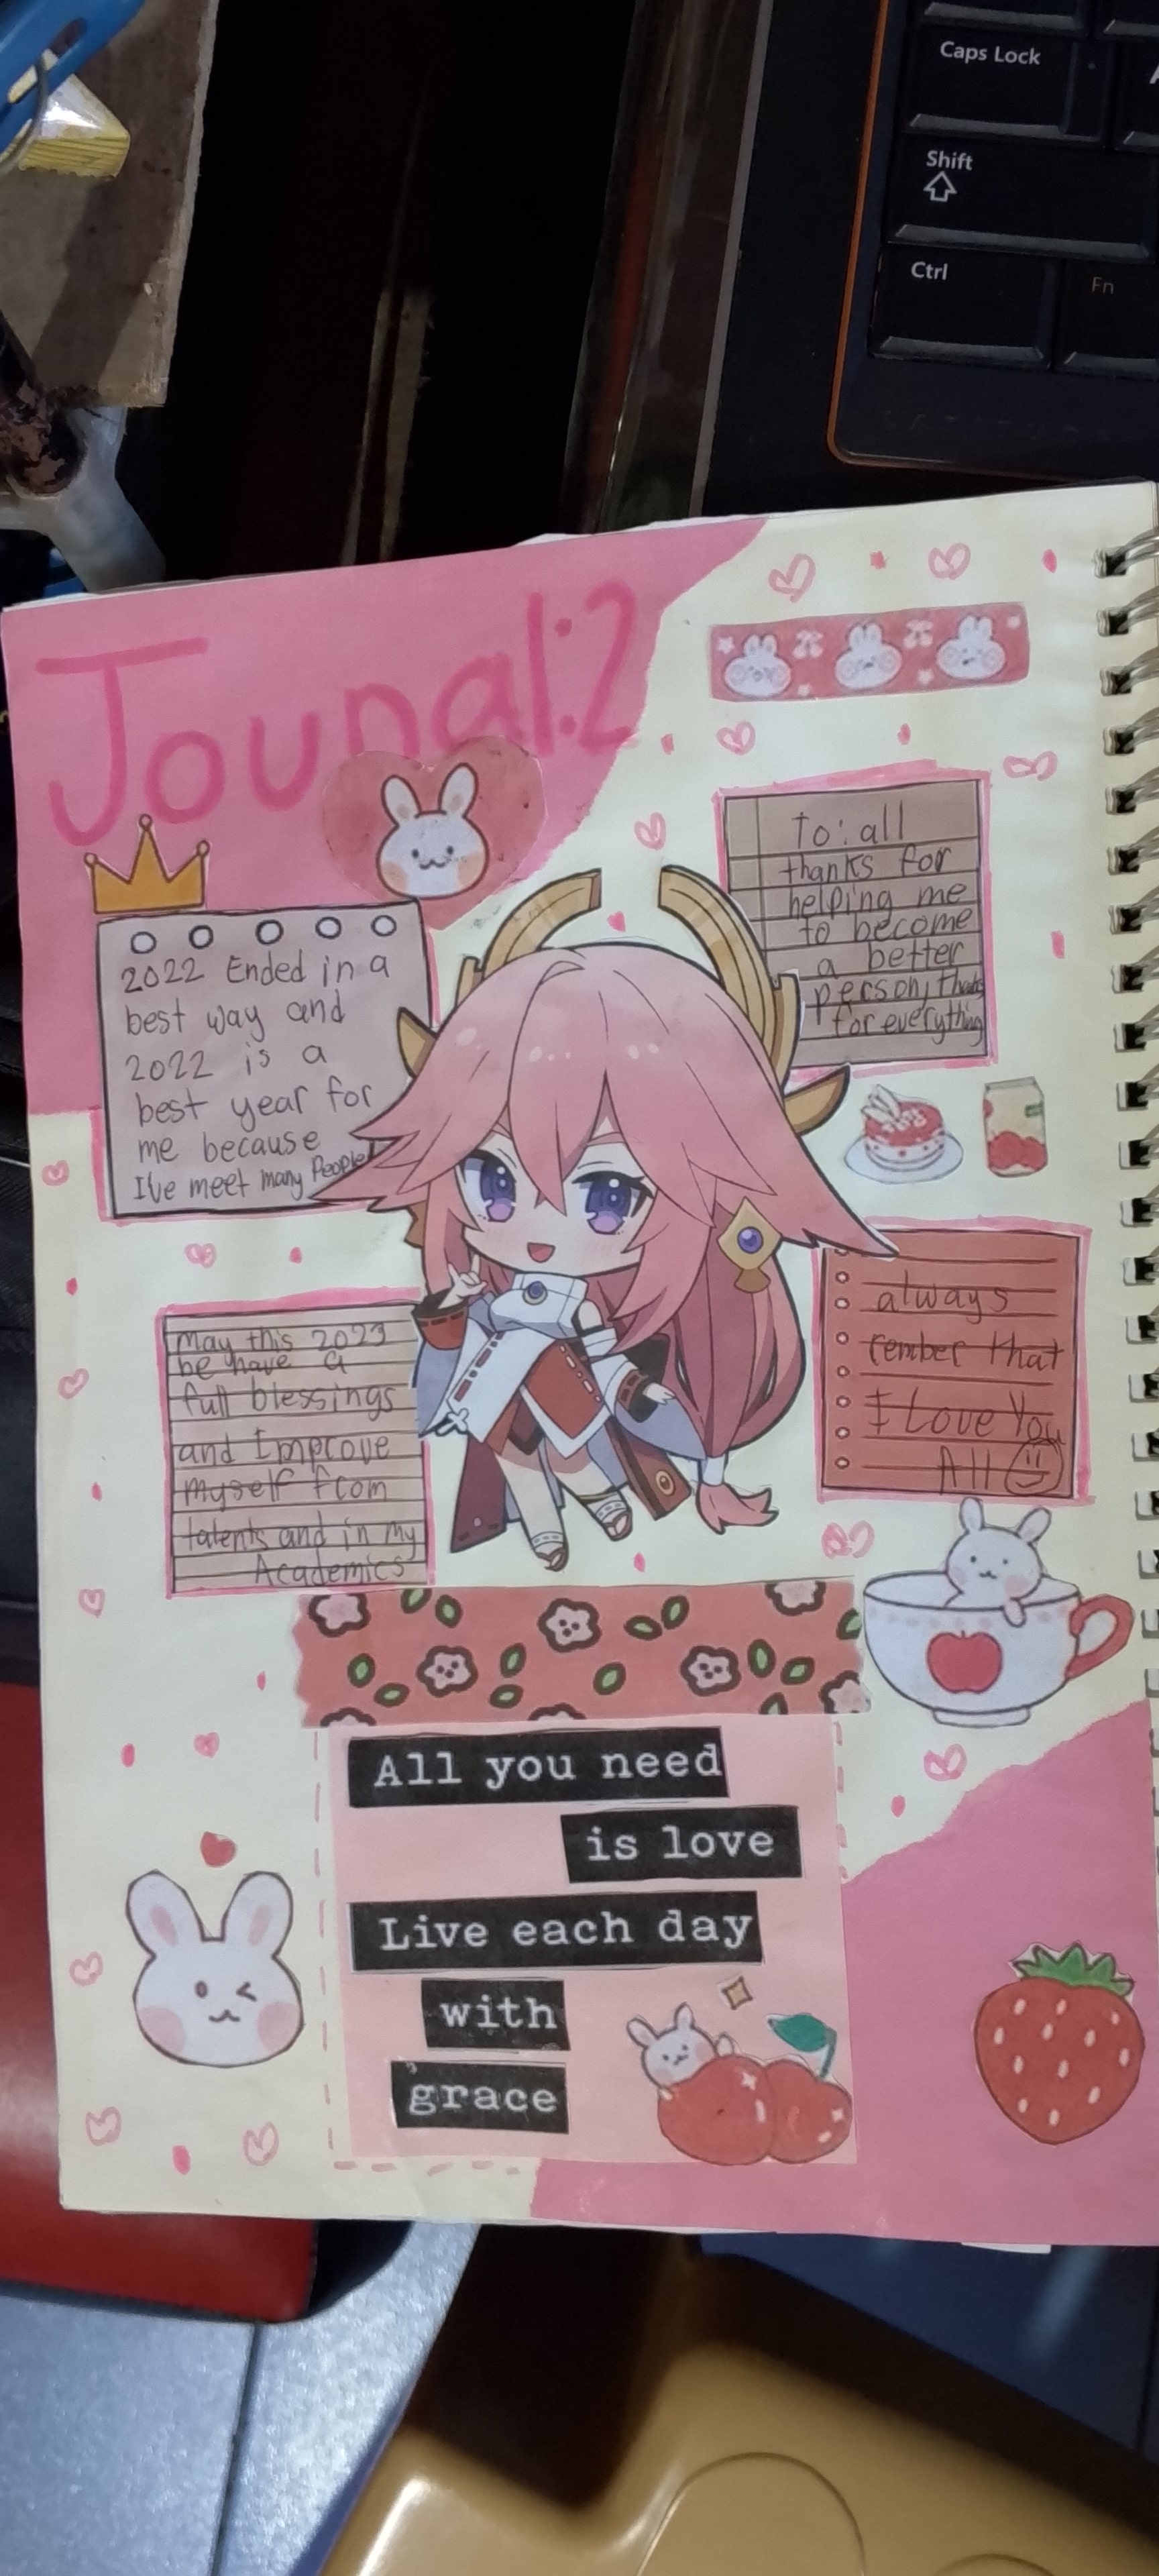 Caps Lock
Shift
Ctrl
Fn
Jounal:2
2022 Ended in a
best way and
2022 is a
best year for
me because
I've meet many People
to: all
thanks for
helping me
to become
a better
person, thanks
for everything
May this 2023
be have a
full blessings
and Improve
myself from
talents and in my
Academics
always
rember that
I Love You
All
All you need
is love
Live each day
with
grace